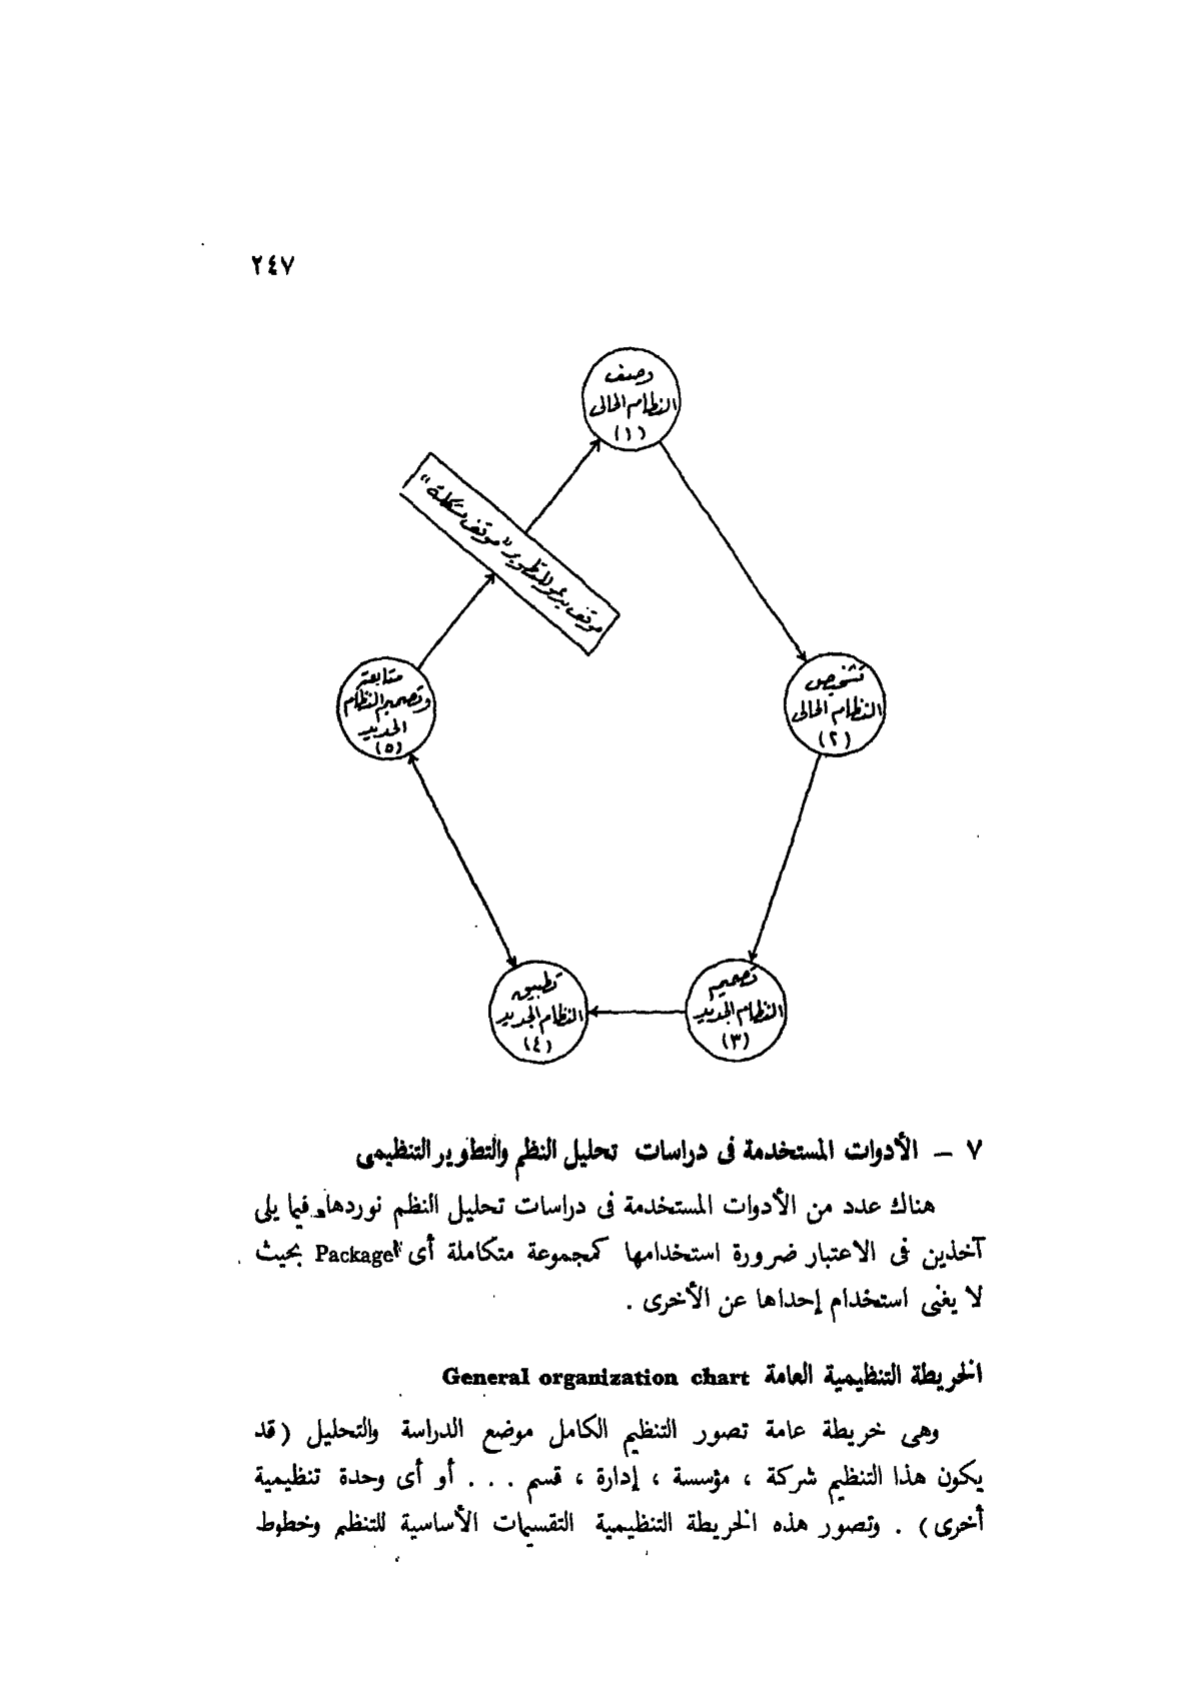 ٢٤٧
وصف
النظام الحالى
(١)
موقف يدعو للتطوير "موقف مشكلة"
تشخيص
النظام الحالى
(٢)
متابعة
وتصميم النظام
الجديد
(٥)
تصميم
النظام الجديد
(٣)
تطبيق
النظام الجديد
(٤)
٧ – الأدوات المستخدمة فى دراسات تحليل النظم والتطوير التنظيمى
هناك عدد من الأدوات المستخدمة فى دراسات تحليل النظم نوردها فيما يلى
آخذين فى الاعتبار ضرورة استخدامها كمجموعة متكاملة أى Package بحيث
لا يغنى استخدام إحداها عن الأخرى .
الخريطة التنظيمية العامة General organization chart
وهى خريطة عامة تصور التنظيم الكامل موضع الدراسة والتحليل (قد
يكون هذا التنظيم شركة ، مؤسسة ، إدارة ، قسم . . . أو أى وحدة تنظيمية
أخرى) . وتصور هذه الخريطة التنظيمية التقسيمات الأساسية للتنظيم وخطوط